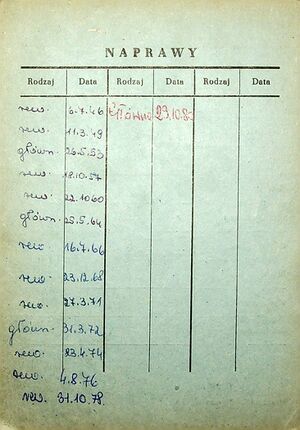 NAPRAWY
Rodzaj Data Rodzaj Data Rodzaj Data
rew. 6.7.46 Główna 23.10.80
rew. 11.3.49
główn. 26.5.53
rew. 18.10.57
rew. 22.10.60
główn. 25.5.64
rew. 16.7.66
rew. 23.12.68
rew. 27.3.71
główn. 31.3.72
rew. 23.4.74
rew. 4.8.76
rew. 31.10.78.